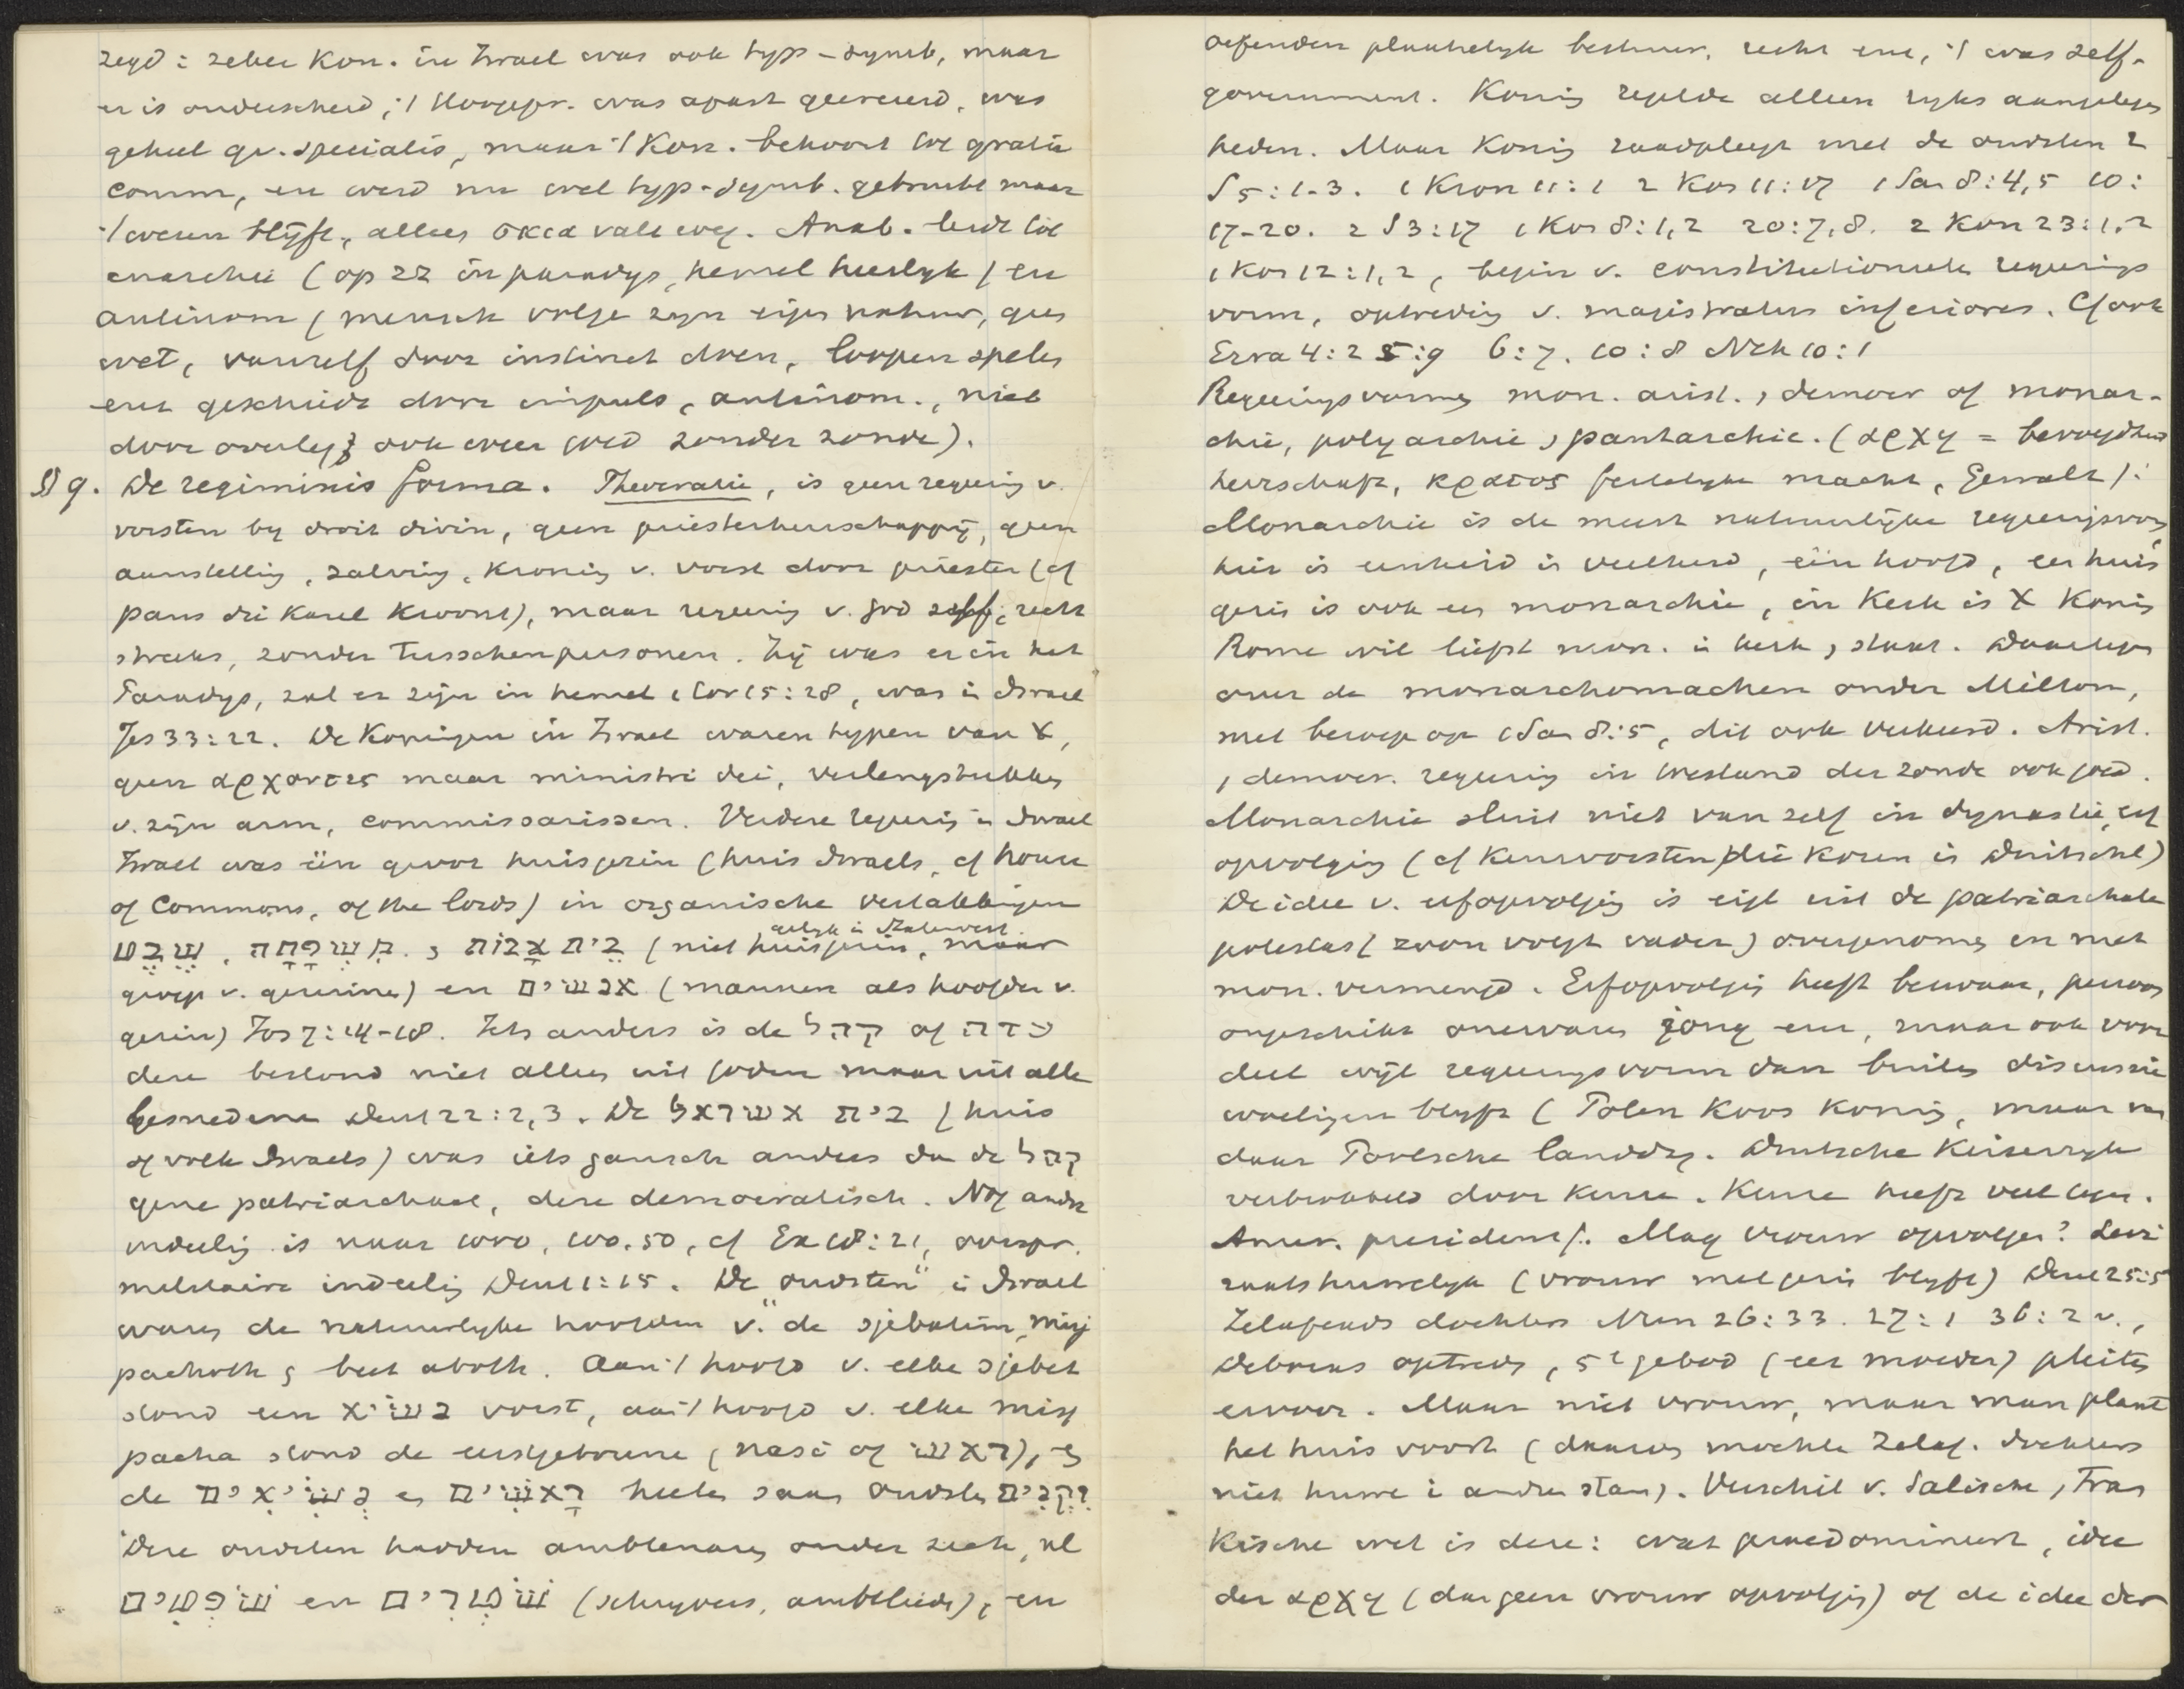 zegd: zeker Kon. in Israel was ook typ-symb, maar
er is onderscheid; 't Hoogepr. was apart gecreeerd, was
geheel gr. specialis, maar 't Kon. behoort tot gratia
comm, en werd nu wel typ-symb. gebruikt maar
't wezen blijft, alleen σκια valt weg. Anab. leidt tot
anarchie (op zz in paradys, hemel heerlyk) en
antinom (mensch volge zyn eigen natuur, geen
wet, vanzelf door instinct doen, loopen spelen
enz geschiedt door impuls, antinom., niet
door overleg; ook weer goed zonder zonde).
§ 9. De regiminis forma. Theocratie, is geen regering v.
vorsten by droit divin, geen priesterheerschappij, geen
aanstelling, zalving, kroning v. vorst door priester (cf
paus die Karel kroont), maar regering v. God zelf, recht
streeks, zonder tusschenpersonen. Zij was er in het
Paradys, zal er zijn in hemel 1 Cor 15:28, was in Israel
Jes 33:22. De Koningen in Israel waren typen van X,
geen αρχοντες maar ministri dei, verlengstukken
v. zijn arm, commissarissen. Verdere regering in Israel
Israel was één groot huisgezin (huis Israels, cf house
of Commons, of the lords) in organische vertakkingen
שֵׁבֶט, מִשְׁפָּחָה. & בֵּית אָבוֹת (niet huisgezin, maar
gelyk in Statenvert.
groep v. gezinnen) en אנשים (mannen als hoofden v.
gezin) Jos 7:14-18. Iets anders is de קהל of עדה
deze bestond niet alleen uit joden maar uit alle
besnedene Deut 22:2,3. De בית ישראל (huis
of volk Israels) was iets gansch anders dan de קהל
gene patriarchaal, deze democratisch. Nog andre
indeeling is naar 1000, 100, 50, cf Ex 18:21, oorspr.
militaire indeeling Deut 1:15. De "oudsten" in Israel
waren de natuurlyke hoofden v. de sjebatim, misj
pachoth & beet aboth. Aan 't hoofd v. elke sjebet
stond een נשׂיא vorst, aan 't hoofd v. elke misj
pacha stond de eerstgeborene (nasi of ראשׁ), &
de נְשִׂיאִים en רָאשִׁים heeten saam oudsten זְקֵנִים
Deze oudsten hadden ambtenaren onder zich, nl
שׁוֹפְטִים en שׁוֹטְרִים (schryvers, ambtlieden), en
oefenden plaatselyk bestuur, recht enz, 't was self-
government. Koning regelde alleen ryks aangelegen
heden. Maar Koning raadpleegt met de oudsten 2
S 5:1-3. 1 Kron 11:1 2 Kon 11:17 1 Sam 8:4,5 10:
17-20. 2 S 3:17 1 Kon 8:1,2 20:7,8. 2 Kon 23:1,2
1 Kon 12:1,2, begin v. constitutioneele regerings
vorm, optreding v. magistratus inferiores. Cf ook
Ezra 4:2 5:9 6:7. 10:8 Neh 10:1
Regeringsvormen mon. arist., democr of monar-
chie, polyarchie, pantarchie. (αρχη = bevoegdheid
heerschap, κρατος feitelyke macht, Gewalt).
Monarchie is de meest natuurlijke regeringsvorm
hier is eenheid in veelheid, één hoofd, een huis
gezin is ook een monarchie, in Kerk is X Koning
Rome wil liefst mon. in kerk, staat. Daartegen
over de monarchomachen onder Milton,
met beroep op 1 Sam 8:5, dit ook verkeerd. Arist.
, democr. regering in toestand der zonde ook goed.
Monarchie sluit niet van zelf in dynastie, erf
opvolging (cf keurvorsten die kozen in Duitschl)
De idee v. erfopvolging is eigl uit de patriarchale
potestas (zoon volgt vader) overgenomen en met
mon. vermengd. Erfopvolging heeft bezwaar, persoon
ongeschikt onervaren jong enz, maar ook voor
deel wijl regeringsvorm dan buiten discussie
woelingen blyft (Polen koos koning, maar van
daar Poolsche landdag. Duitsche Keizerryk
verbrokkeld door keuze. Keuze heeft veel tegen.
Amer. president). Mag vrouw opvolgen? Levi
raatshuwelyk (vrouw met gezin blyft) Deut 25:5
Zelafeads dochters Num 26:33. 27:1 36:2 v.,
Deboras optreden, 5e gebod (eer moeder) pleiten
ervoor. Maar niet vrouw, maar man plant
het huis voort (daarom mochten Zelaf. dochters
niet huwen in andren stam). Verschil v. Salische, Fran
kische wet is deze: wat praedomineert, idee
der αρχη (dan geen vrouw opvolging) of de idee der